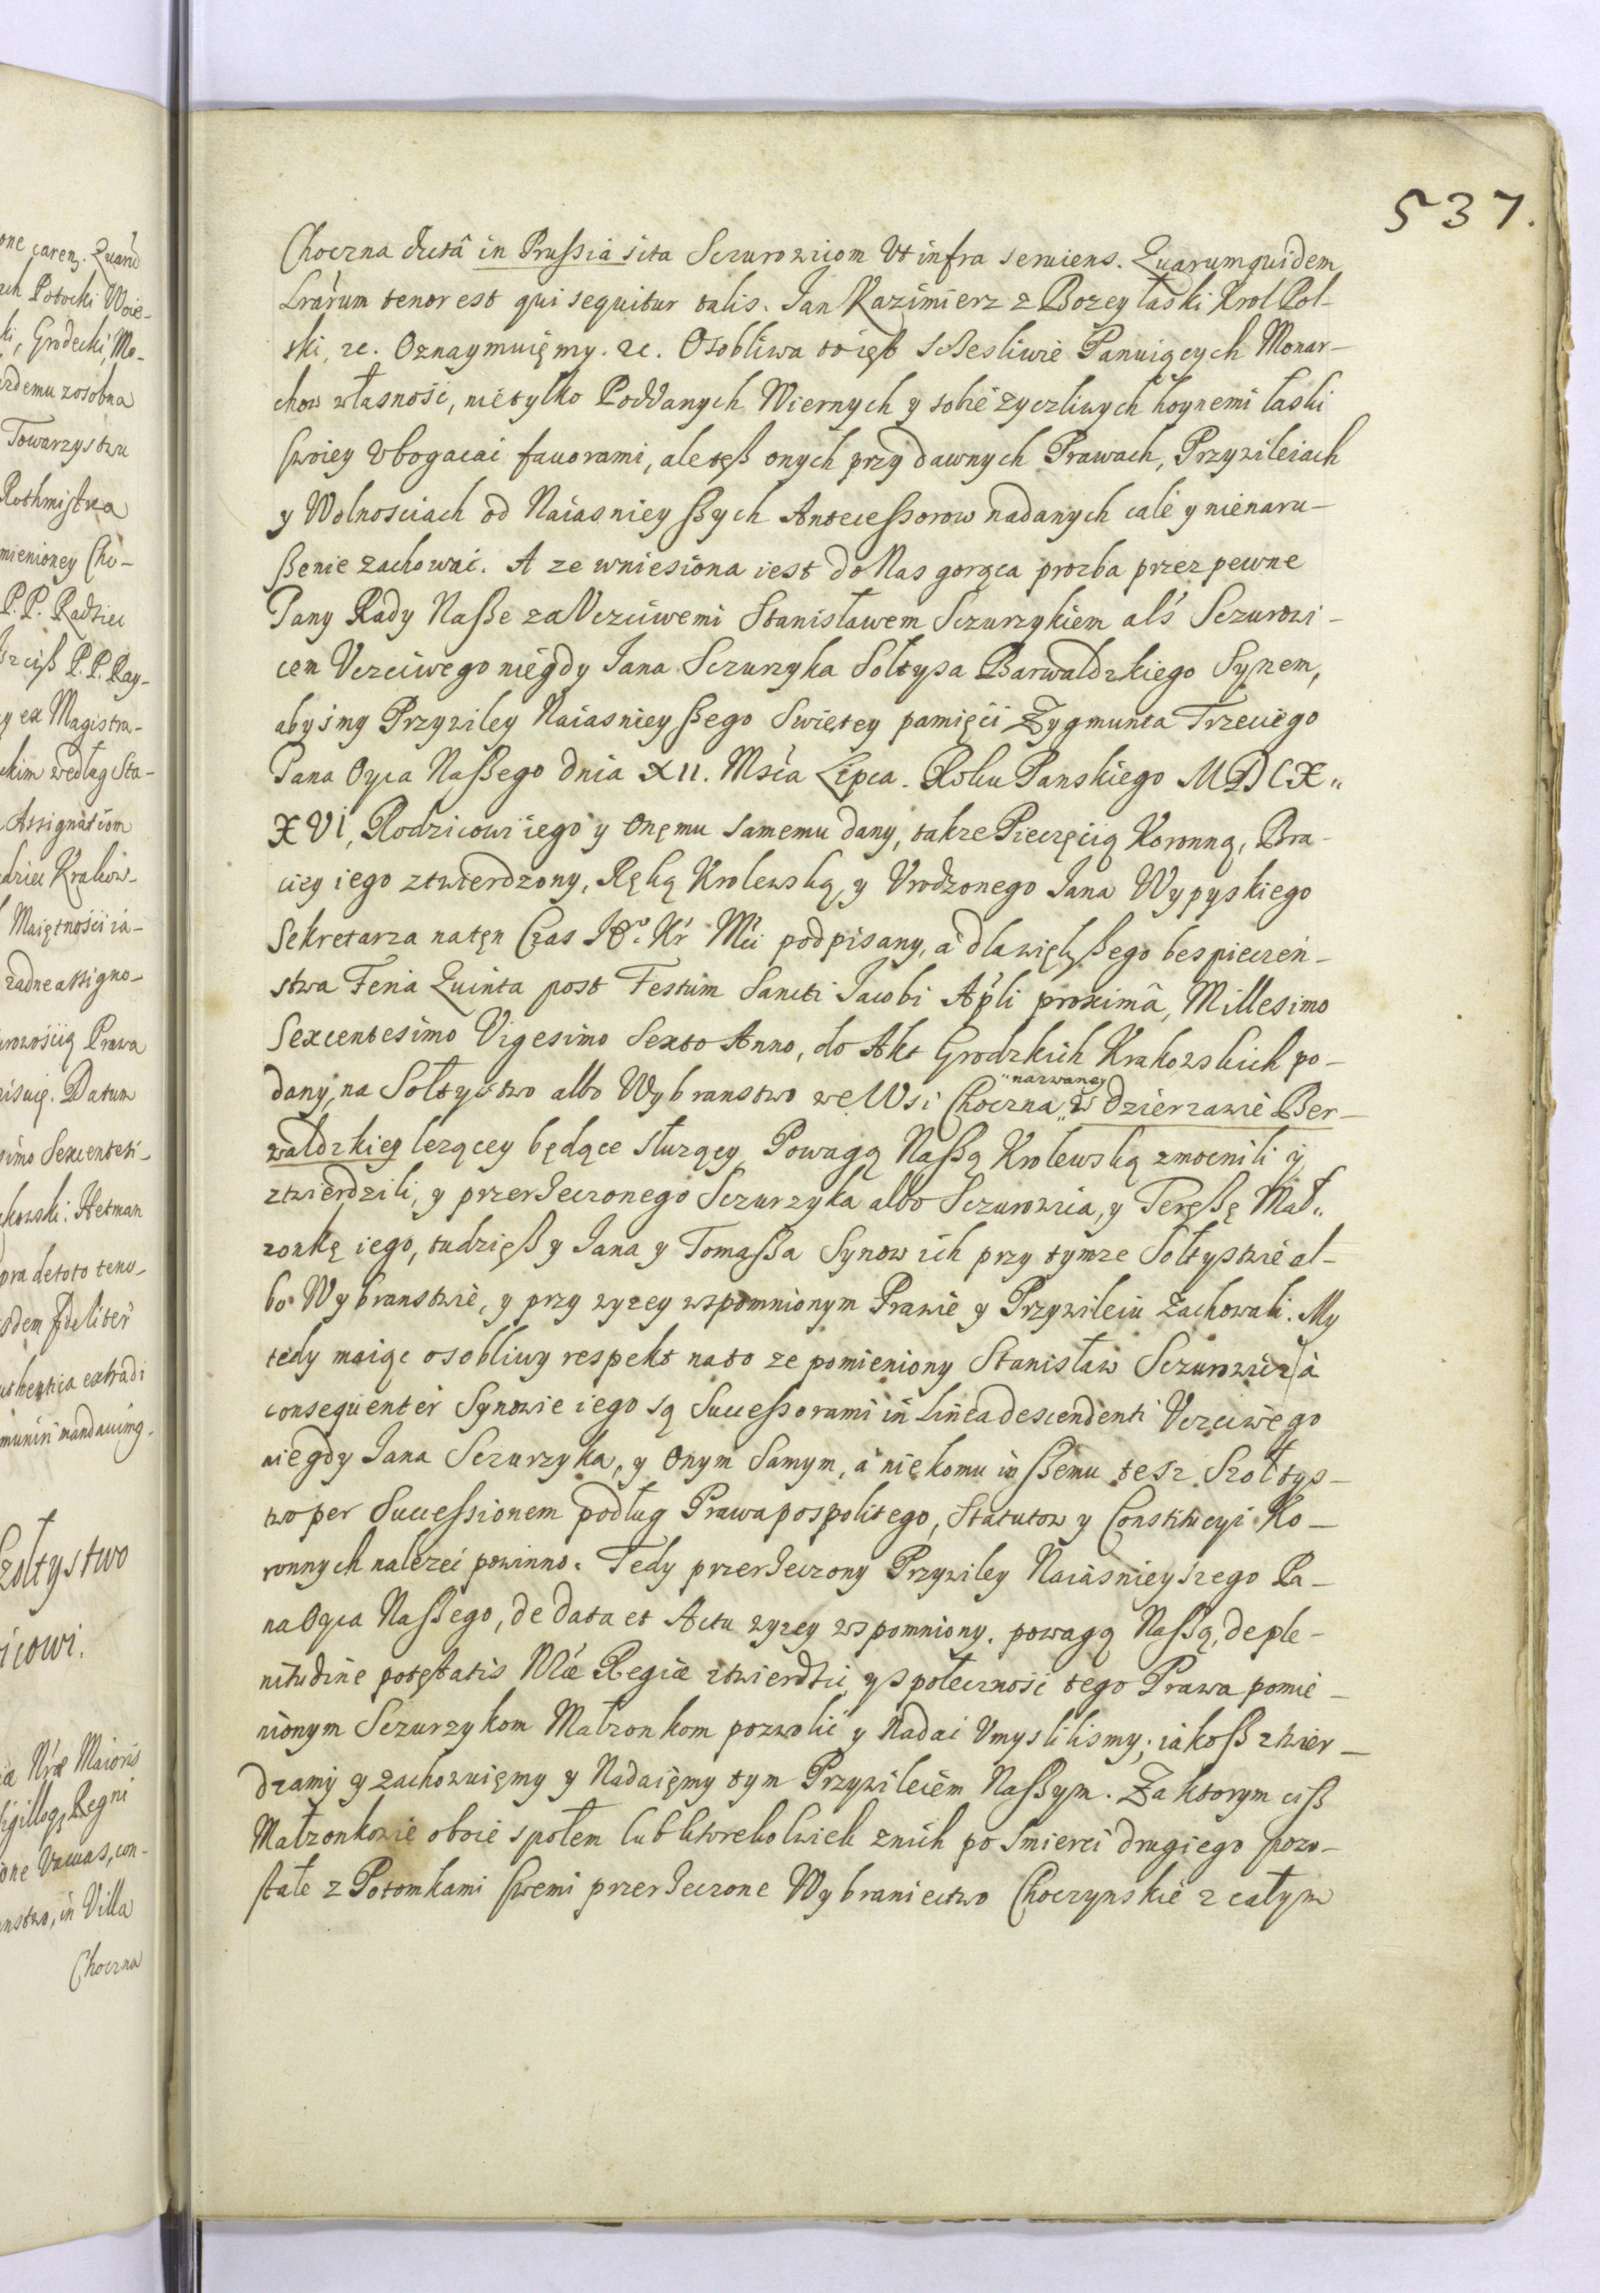 537.
Choczna dictâ in Prussia sita Sczurowiom Ut infra seruiens. Quarumquidem
Lrarum tenor est qui sequitur talis. Jan Kazimierz z Bozey łaski Krol Pol-
ski, &c. Oznaymuięmy. &c. Osobliwa to ięst sczesliwie Panuiących Monar-
chow własność, nie tylko Poddanych Wiernych y sobie zyczliwych hoynemi łaski
swoiey vbogacać fauorami, ale tęß onych przy dawnych Prawach, Przywileiach
y Wolnosciach od Naiasnieyßych Antecessorow nadanych cale y nienaru-
ßenie zachować. A ze wniesiona iest do Nas gorąca prozba przez pewne
Pany Rady Naße za Vczciwemi Stanisławem Sczurzykiem als Sczurowi-
cem Vczciwego niegdy Jana Sczurzyka Sołtysa Barwaldzkiego Synem,
abysmy Przywiley Naiasnieyßego Swiętey pamięci Zygmunta Trzeciego
Pana Oyca Naßego dnia XII. Msca Lipca. Roku Panskiego MDCX"
XVI, Rodzicowi iego y onęmu samemu dany, takze Pieczęcią Koronną, Bra-
ciey iego ztwierdzony, Ręką Krolewską, y Vrodzonego Jana Wypyskiego
Sekretarza natęn Czas JG° Kr Mći podpisany, à dla więkßego bespieczeń-
stwa Feria Quinta post Festum Sancti Jacobi Apli proximâ, Millesimo
Sexcentesimo Vigesimo Sexto Anno, do Akt Grodzkich Krakowskich po-
dany, na Sołtystwo albo Wybranstwo we Wsi Choczna "nazwaney" w dzierzawie Ber-
waldzkieg lezącey będące słuzący Powagą Naßą Krolewską zmocnili y
ztwierdzili, y przerzeczonego Sczurzyka albo Sczurowica, y Tereßę Mał"
zonkę iego, tudzięß y Jana y Tomaßa Synow ich przy tymze Sołtystwie al-
bo Wybranstwie, y przy wyzey wspomnionym Prawie y Przywileiu zachowali. My
tedy maiąc osobliwy respekt na to ze pomieniony Stanisław Sczurowicz à
consequenter Synowie iego są Successorami in Linea descendenti Vczciwego
niegdy Jana Sczurzyka, y Onym Samym, à niekomu inßemu tesz Szołtys-
two per Successionem podług Prawa pospolitego, Statutow y Constitucyi Ko-
ronnych nalezeć powinno. Tedy przerzeczony Przywiley Naiasnieyszego Pa-
na Oyca Naßego, de data et Actu wyzey wspomniony, powagą Naßą, de ple-
nitudine potęstatis Nrae Regiae ztwierdzić y społeczność tego Prawa pomie-
nionym Sczurzykom Małzonkom pozwolić y Nadać Vmyslilismy; iakoß ztwier-
dzamy y zachowuięmy y Nadaięmy tym Przywileięm Naßym. Za ktorym ciß
Małzonkowie oboie społem lub ktorekolwiek znich po smierci drugiego pozo-
stałe z Potomkami swemi przerzeczone Wybraniectwo Choczynskie z całym